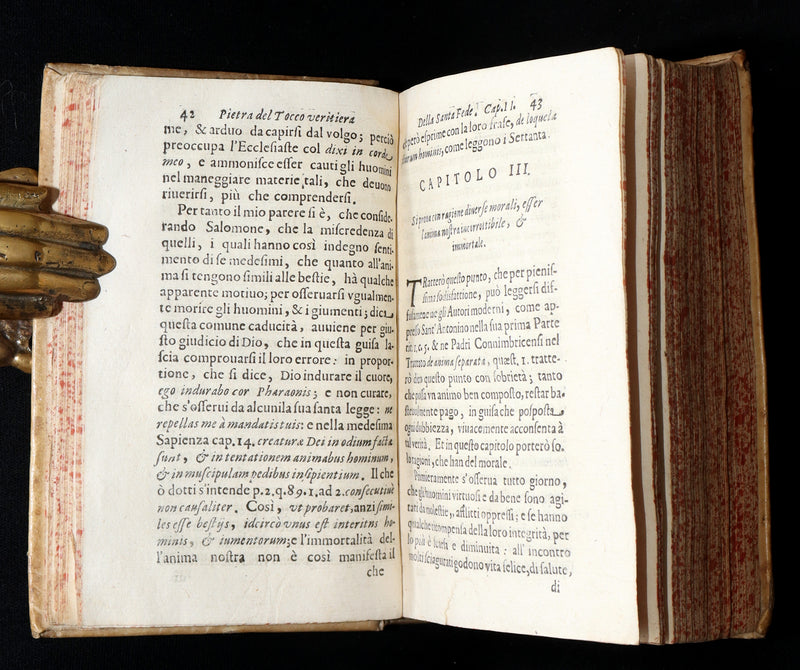 42 Pietra del Tocco veritiera
me, & arduo da capirsi dal volgo; perciò
preoccupa l'Ecclesiaste col dixi in corde
meo, e ammonisce esser cauti gli huomini
nel maneggiare materie tali, che deuono
riuerirsi, più che comprendersi.
Per tanto il mio parere si è, che conside-
rando Salomone, che la miscredenza di
quelli, i quali hanno così indegno senti-
mento di se medesimi, che quanto all'ani-
ma si tengono simili alle bestie, hà qualche
apparente motiuo; per osseruarsi vgualmen-
te morire gli huomini, & i giumenti; dica
questa comune caducità, auuiene per giu-
sto giudicio di Dio, che in questa guisa la-
scia comprouarsi il loro errore: in propor-
tione, che si dice, Dio indurare il cuore,
ego indurabo cor Pharaonis; e non curare,
che s'osserui da alcuni la sua santa legge: ne
repellas me à mandatis tuis: e nella medesima
Sapienza cap. 14. creaturæ Dei in odium factæ
sunt, & in tentationem animabus hominum,
& in muscipulam pedibus insipientium. Il che
ò dotti s'intende p.2.q.89.1.ad 2. consecutiuè
non causaliter. Così, vt probaret, anzi simi-
les esse bestijs, idcircò vnus est interitus ho-
minis, & iumentorum; e l'immortalità del-
l'anima nostra non è così manifesta il
che
Della Santa Fede. Cap. II. 43
e però esprime con la loro frase, de loquela
filiorum hominis, come leggono i Settanta.
CAPITOLO III.
Si proua con ragione diuerse morali, esser
l'anima nostra incorrottibile, &
immortale.
TRatterò questo punto, che per pienis-
sima sodisfattione, può leggersi dif-
fusamente ne gli Autori moderni, come ap-
presso Sant'Antonino nella sua prima Parte
tit. 1. c. 5. & ne Padri Connimbricensi nel
Trattato de anima separata, quæst. 1. tratte-
rò dico questo punto con sobrietà; tanto
che possa vn animo ben composto, restar ba-
steuolmente pago, in guisa che posposta
ogni dubbiezza, viuacemente acconsenta à
tal verità. Et in questo capitolo porterò so-
lo ragioni, che han del morale.
Primieramente s'osserua tutto giorno,
che gli huomini virtuosi e da bene sono agi-
tati da molestie, afflitti oppressi; e se hanno
qualche ricompensa della loro integrità, per
lo più è scarsa e diminuita: all'incontro
molti sciagurati godono vita felice, di salute,
di